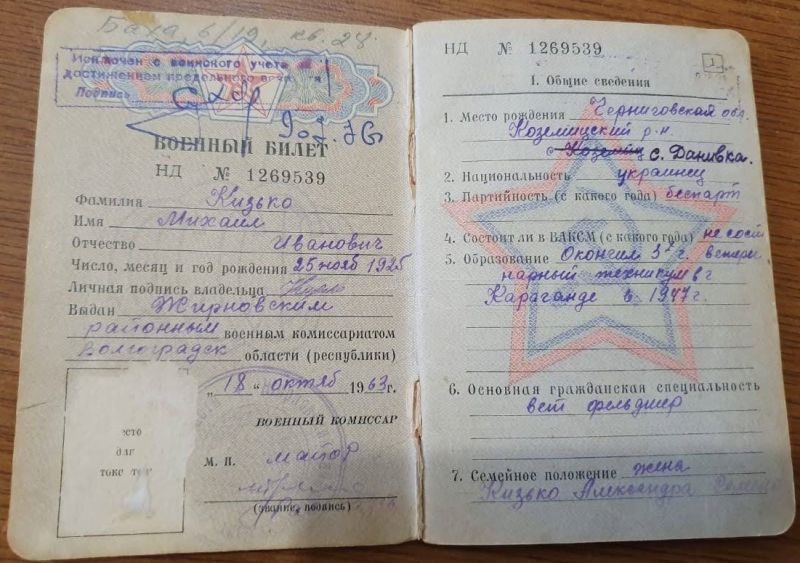 Баха, 6/19, кв. 28
Исключен с воинского учета за
достижением предельного возраста
Подпись
ВОЕННЫЙ БИЛЕТ
НД № 1269539
Фамилия Кизько
Имя Михаил
Отчество Иванович
Число, месяц и год рождения 25 нояб 1925
Личная подпись владельца
Выдан Жирновским
районным военным комиссариатом
Волгоградск области (республики)
„18“ октяб 1963 г.
ВОЕННЫЙ КОМИССАР
М. П. майор
(звание, подпись)
НД № 1269539
1
1. Общие сведения
1. Место рождения Черниговская обл.
Козелицкий р-н.
с. Данивка.
2. Национальность украинец
3. Партийность (с какого года) беспарт
4. Состоит ли в ВЛКСМ (с какого года) не сост
5. Образование Окончил 3х г. ветери
нарный техникум в г
Караганде в 1947 г.
6. Основная гражданская специальность
вет фельдшер
7. Семейное положение жена
Кизько Александра